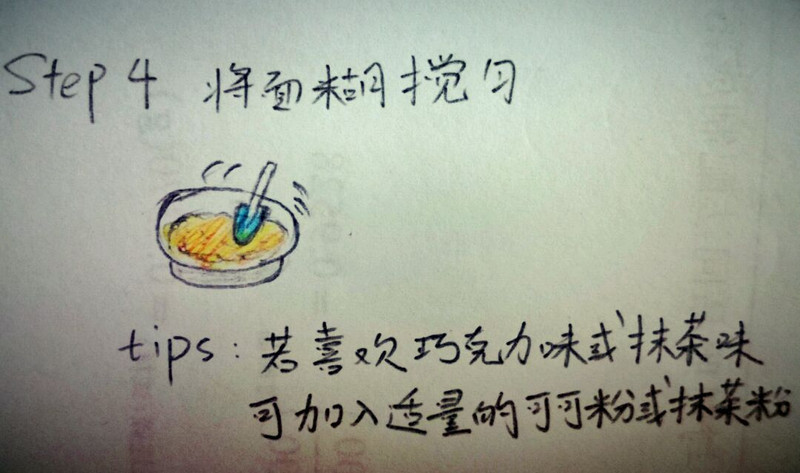 Step 4 将面糊搅匀
tips: 若喜欢巧克力味或抹茶味
可加入适量的可可粉或抹茶粉